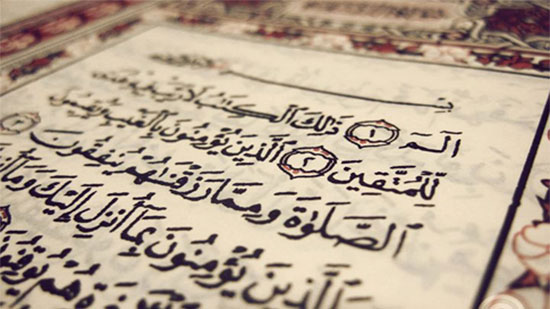 الٓمٓ ١ ذَٰلِكَ الْكِتَابُ لَا رَيْبَ فِيهِ هُدًى
لِّلْمُتَّقِينَ ٢ الَّذِينَ يُؤْمِنُونَ بِالْغَيْبِ وَيُقِيمُونَ
الصَّلَوٰةَ وَمِمَّا رَزَقْنَاهُمْ يُنفِقُونَ ٣
وَالَّذِينَ يُؤْمِنُونَ بِمَا أُنزِلَ إِلَيْكَ وَمَا
هُمْ يُوقِنُونَ